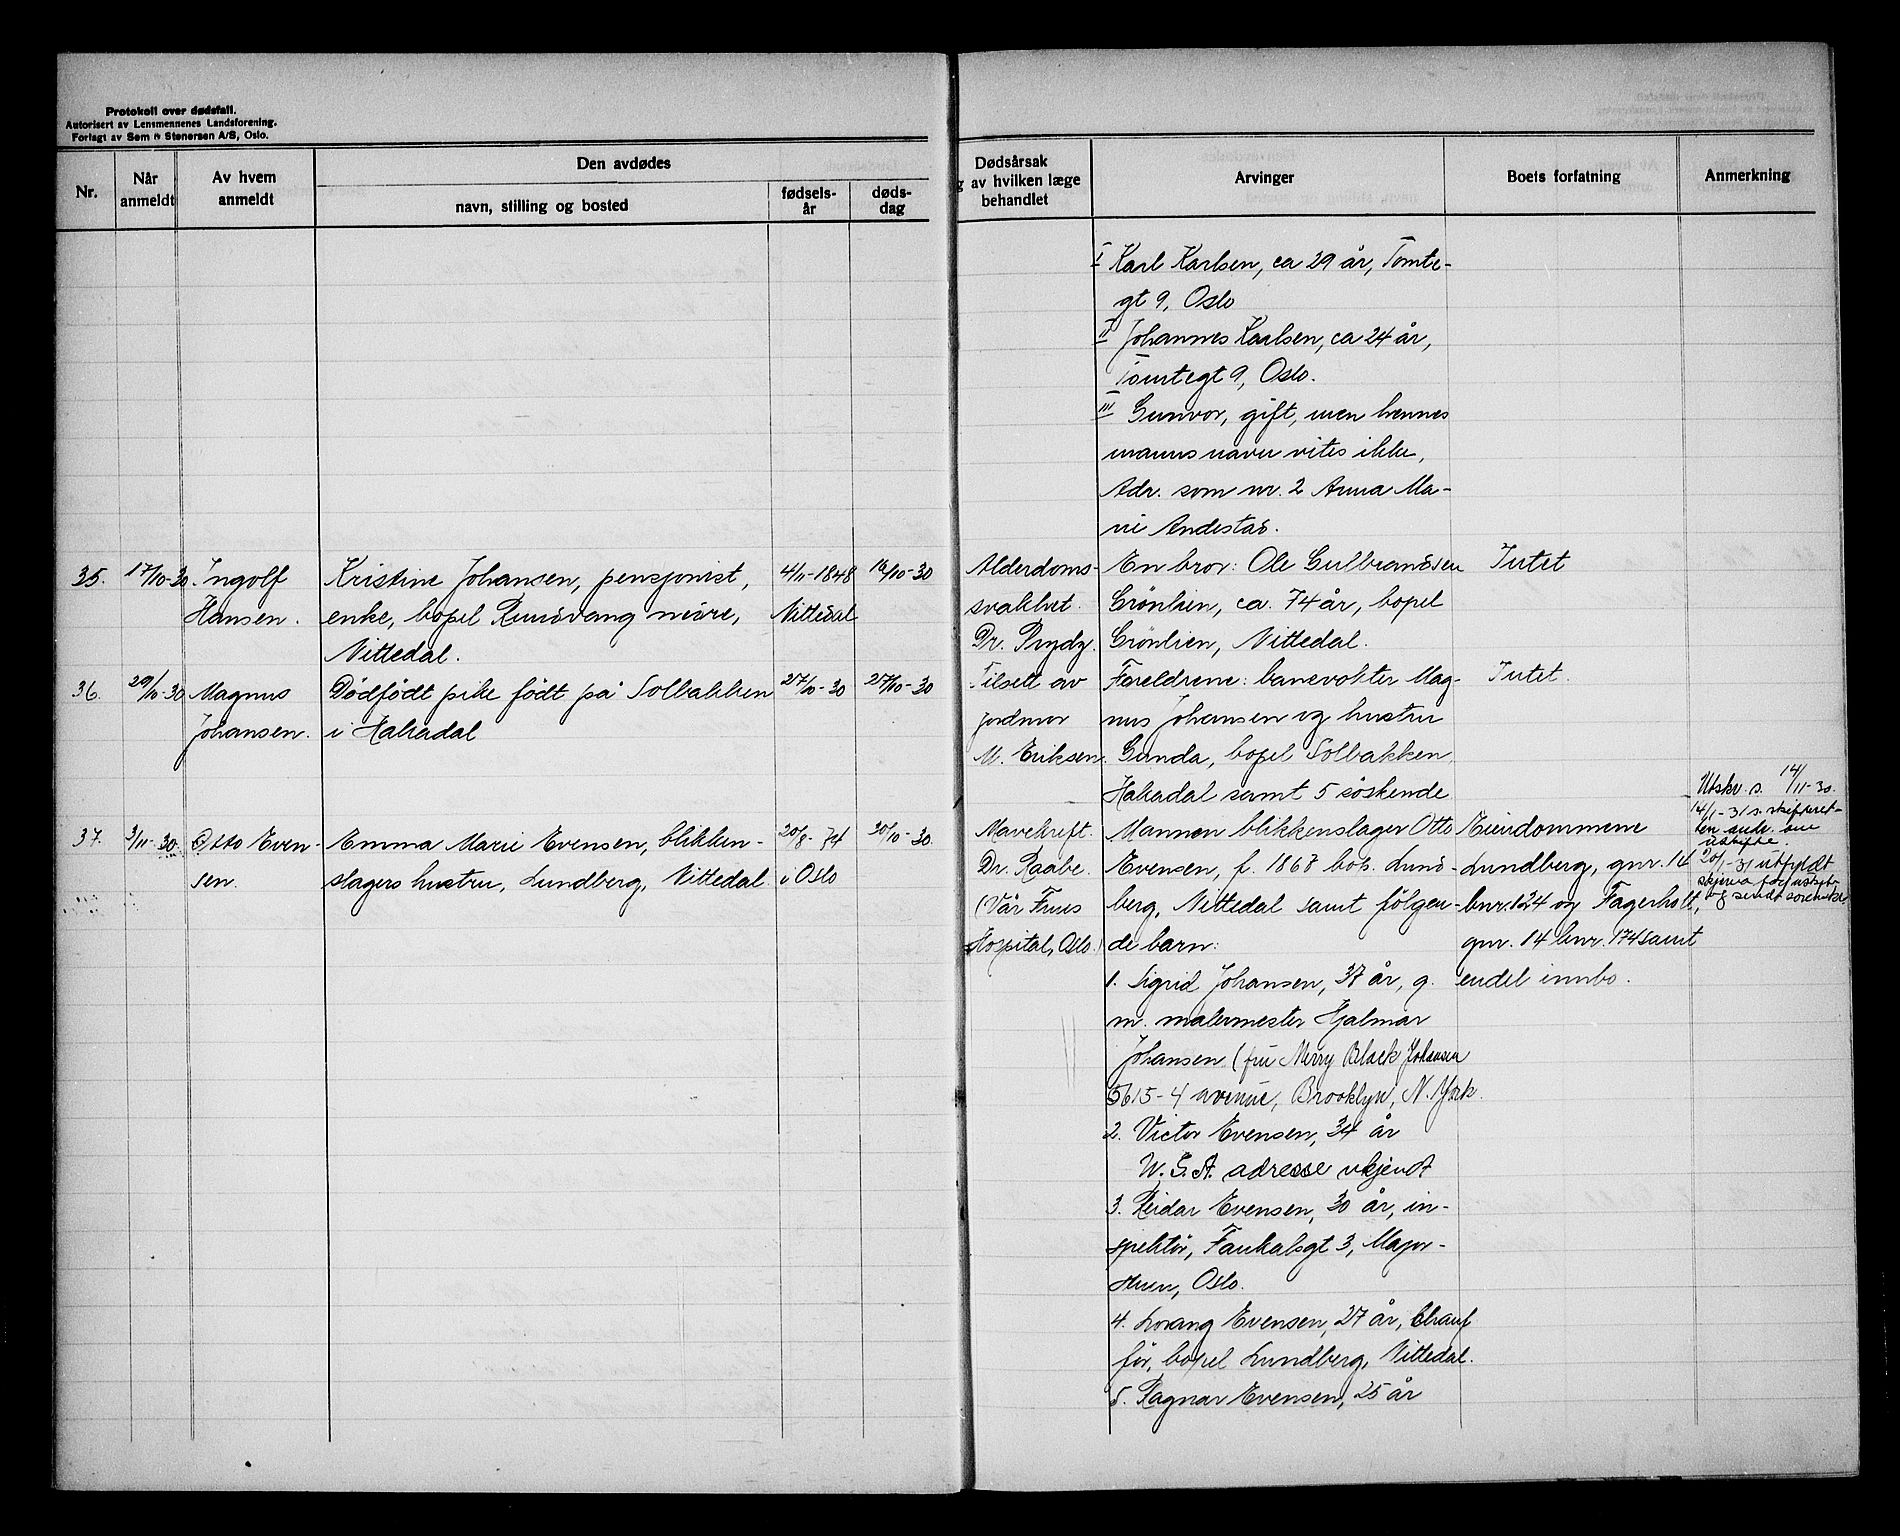 Protokoll over dødsfall.
Autorisert av Lensmennenes Landsforening.
Forlagt av Sem & Stenersen A/S, Oslo.
Nr.
Når anmeldt
Av hvem anmeldt
Den avdødes
navn, stilling og bosted
fødsels-år
døds-dag
Dødsårsak
g av hvilken læge
behandlet
Arvinger
Boets forfatning
Anmerkning
I Karl Karlsen, ca 29 år, Tomte-
gt 9, Oslo
II Johannes Karlsen, ca 24 år,
Tomtegt 9, Oslo.
III Gunvor, gift, men hennes
manns navn vites ikke,
Adr. som nr. 2 Anna Ma-
rie Andestad.
35. 17/10-30 Ingolf
Hansen.
Kristine Johansen, pensjonist,
enke, bopel Rundvang nedre,
Nittedal.
4/11-1848
Nittedal
16/10-30
Alderdoms-
svakhet.
Dr. Prydz.
En bror: Ole Gulbrandsen
Grönlien, ca. 74 år, bopel
Grönlien, Nittedal.
Intet
36. 29/10-30 Magnus
Johansen.
Dödfödt pike födt på Solbakken
i Hakadal
27/10-30
27/10-30
Tilsett av
jordmor
M. Eriksen.
Foreldrene: banevokter Mag-
nus Johansen og hustru
Gunda, bopel Solbakken,
Hakadal samt 5 söskende
Intet.
37. 3/11-30. Otto Even-
sen.
Emma Marie Evensen, blikken-
slagers hustru, Lundberg, Nittedal
20/8-74
i Oslo
30/10-30
Mavekreft.
Dr. Raabe.
(Vår Frues
Hospital, Oslo.)
Mannen blikkenslager Otto
Evensen, f. 1867 bos. Lund-
berg, Nittedal samt fölgen-
de barn:
1. Sigrid Johansen, 37 år, g.
m. malermester Hjalmar
Johansen (fru Merry Black Johansen
5615-4 avenue, Brooklyn, N. York.
2. Victor Evensen, 34 år
U. S. A. adresse ukjendt
3. Reidar Evensen, 30 år, in-
spektör, Faukalsgt 3, Major-
stuen, Oslo.
4. Lorang Evensen, 27 år, Chauf
för, bopel Lundberg, Nittedal.
5. Ragnar Evensen, 25 år
Eiendommene
Lundberg, gnr. 14
bnr. 124 og Fagerholt,
gnr. 14 bnr. 174 samt
endel innbo.
Utskr. s. 14/11-30.
14/1-31 s. skifteret-
ten om
uskifte.
20/1-31 utfyldt
skjema for uskifte
og sendt sorenskr.